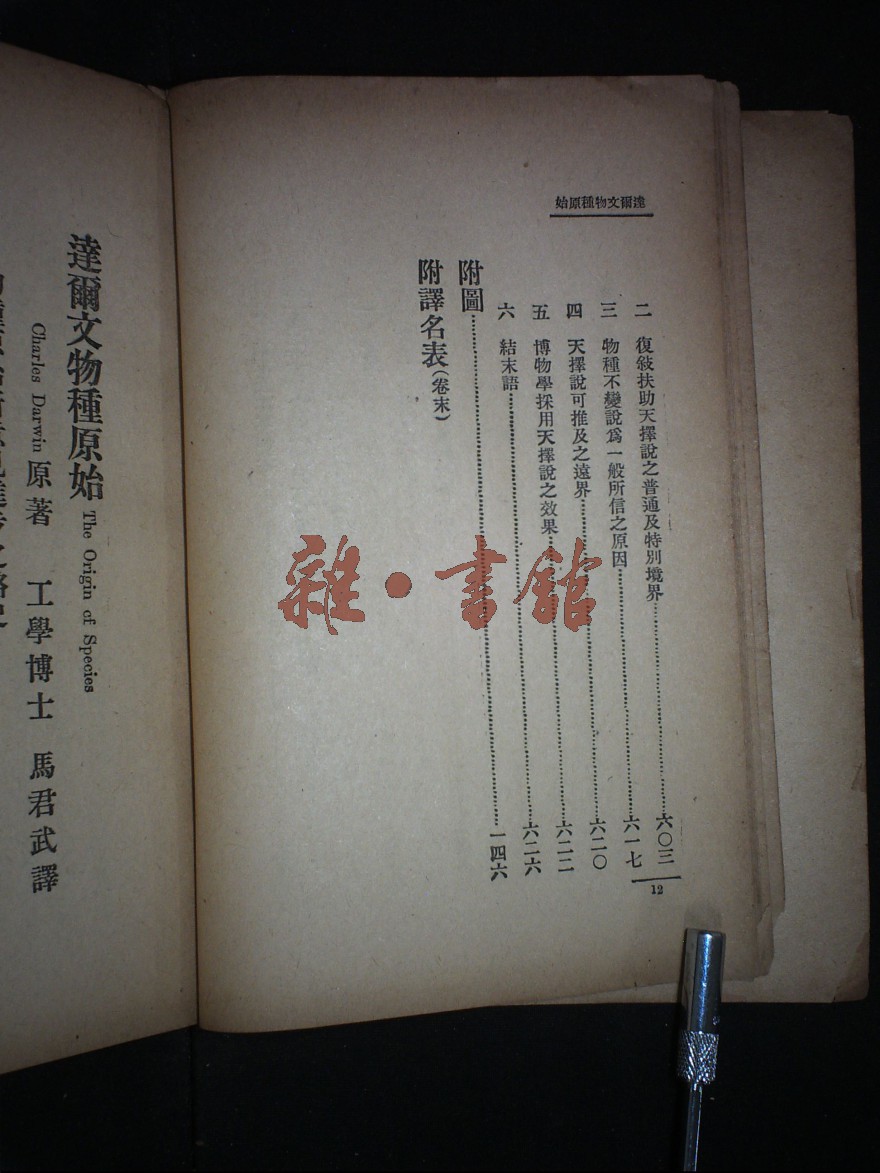 達爾文物種原始
二 復敍扶助天擇說之普通及特別境界……六〇三
三 物種不變說爲一般所信之原因……六一七
四 天擇說可推及之遠界……六二〇
五 博物學採用天擇說之效果……六二二
六 結末語……六二六
附圖……一四六
附譯名表(卷末)
12
達爾文物種原始 The Origin of Species
Charles Darwin 原著 工學博士 馬君武譯
雜·書館